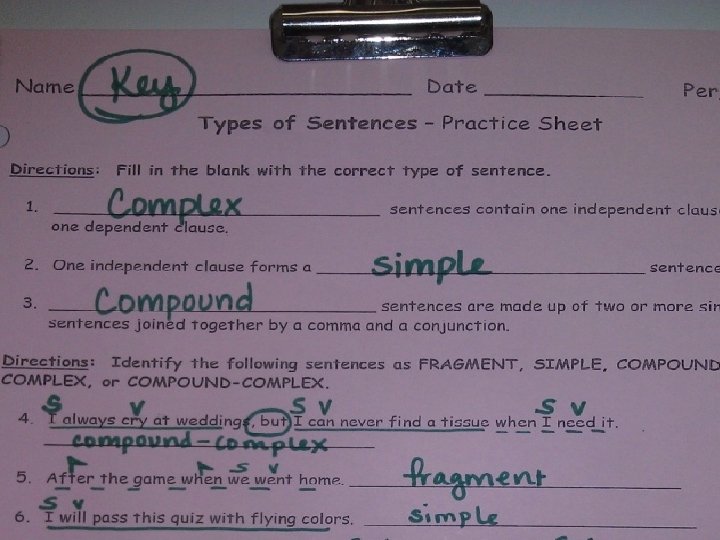 Name Key Date Per
Types of Sentences - Practice Sheet
Directions: Fill in the blank with the correct type of sentence.
1. Complex sentences contain one independent claus
one dependent clause.
2. One independent clause forms a simple sentence
3. Compound sentences are made up of two or more sim
sentences joined together by a comma and a conjunction.
Directions: Identify the following sentences as FRAGMENT, SIMPLE, COMPOUND
COMPLEX, or COMPOUND-COMPLEX.
S V S V S V
4. I always cry at weddings, but I can never find a tissue when I need it.
compound-complex
S V
5. After the game when we went home. fragment
S V
6. I will pass this quiz with flying colors. simple